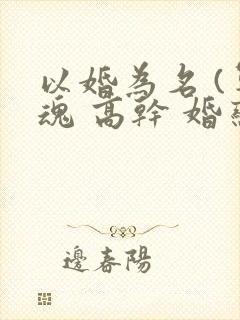 以婚為名(
魂 高幹 婚
邊春陽